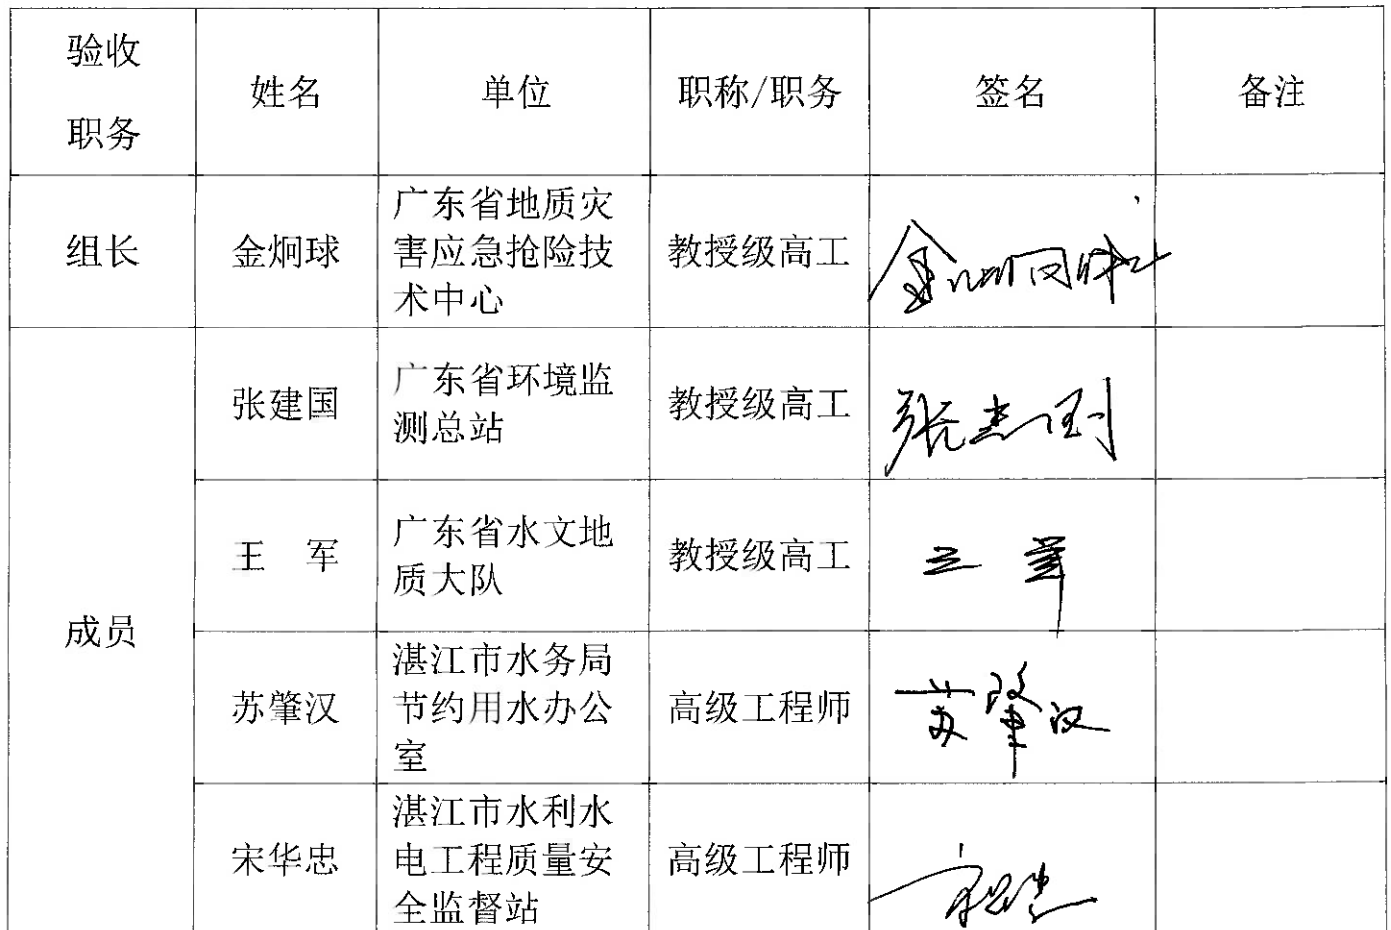 验收
职务
姓名
单位
职称/职务
签名
备注
组长
金炯球
广东省地质灾
害应急抢险技
术中心
教授级高工
金炯球
成员
张建国
广东省环境监
测总站
教授级高工
张建国
王 军
广东省水文地
质大队
教授级高工
王 军
苏肇汉
湛江市水务局
节约用水办公
室
高级工程师
苏肇汉
宋华忠
湛江市水利水
电工程质量安
全监督站
高级工程师